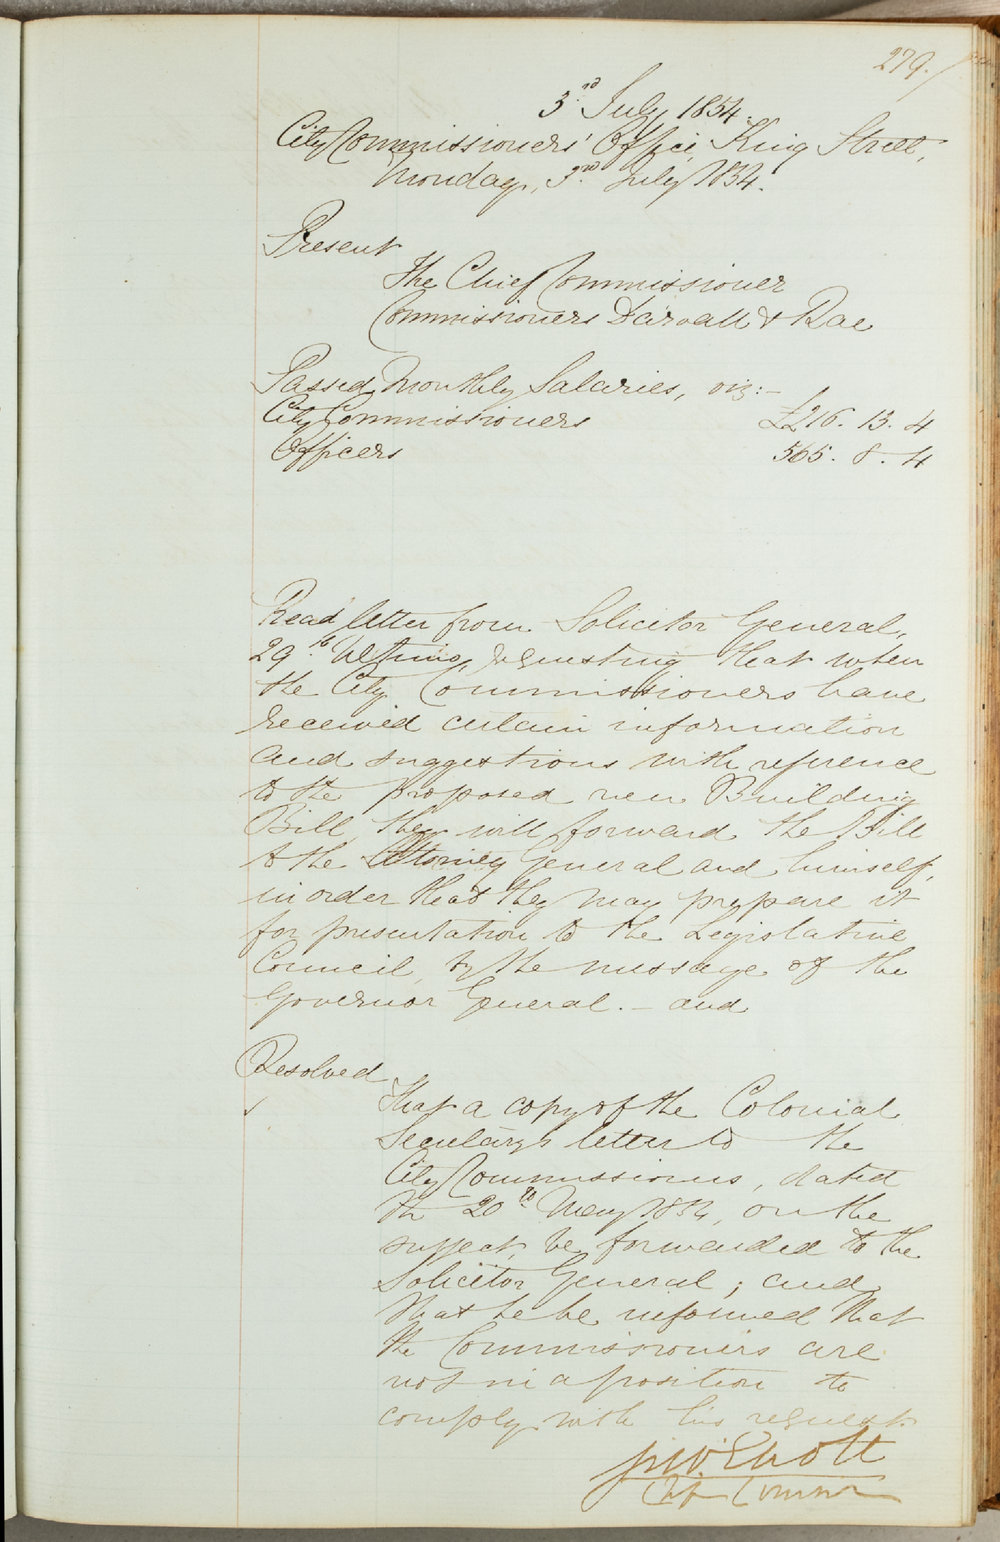 279.
3rd July 1854.
City Commissioners' Office, King Street,
Monday, 3rd July 1854.
Present
The Chief Commissioner
Commissioners Darvall & Rae
Passed Monthly Salaries, viz:-
City Commissioners £216. 13. 4
Officers 565. 8. 4
Read letter from Solicitor General,
29th Ultimo, requesting that when
the City Commissioners have
received certain information
and suggestions with reference
to the proposed new Building
Bill, they will forward the Bill
to the Attorney General and himself,
in order that they may prepare it
for presentation to the Legislative
Council, by the message of the
Governor General. - and
Resolved
That a copy of the Colonial
Secretary's letter to the
City Commissioners, dated
the 20th May 1854, on the
subject, be forwarded to the
Solicitor General; and
that he be informed that
the Commissioners are
not in a position to
comply with his request.